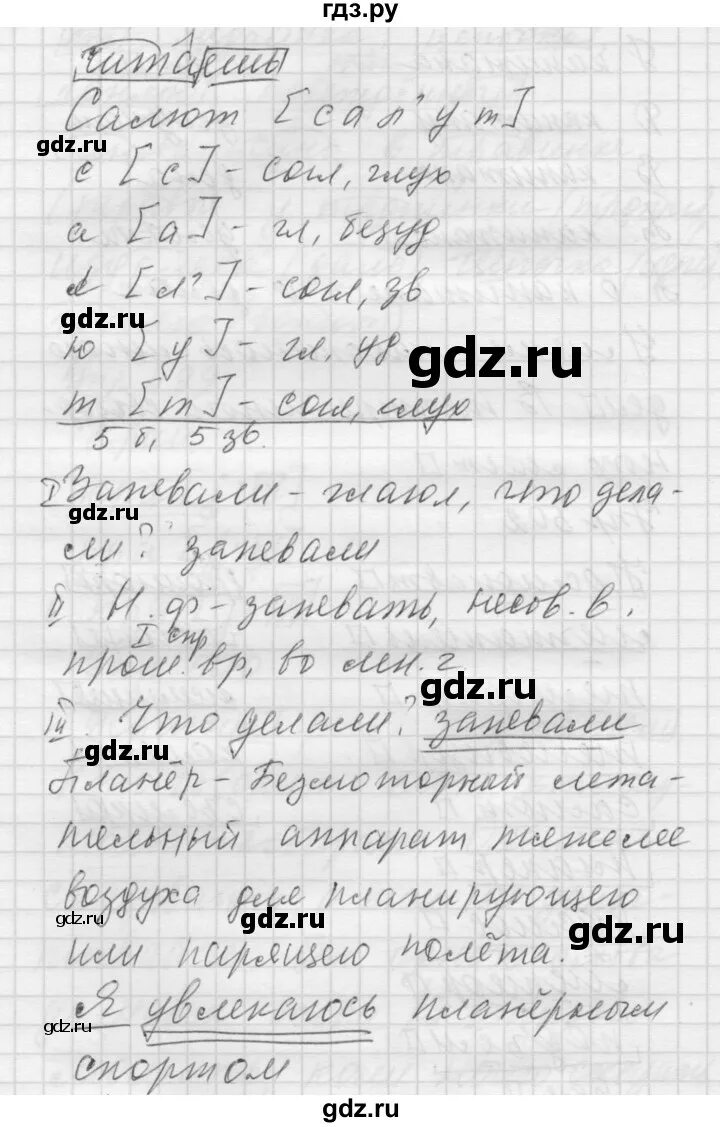 гдз.ру
читаешь
Салют [сал'ут]
с [с] - согл, глух
gdz.ru
а [а] - гл, безуд
л [л'] - согл, зв
gdz.ru
ю [у] - гл, уд
gdz.ru
т [т] - согл, глух
5 б, 5 зв.
I Запевали - глагол, что дела-
gdz.ru
ли? запевали
II Н.ф - запевать, несов. в.
I спр
прош. вр, во мн. ч
gdz.ru
III. Что делали? запевали
gdz.ru
Планёр - Безмоторный лета-
тельный аппарат тяжелее
воздуха для планирующего
gdz.ru
gdz.ru
или парящего полёта.
Я увлекаюсь планёрным
gdz.ru
спортом
gdz.ru